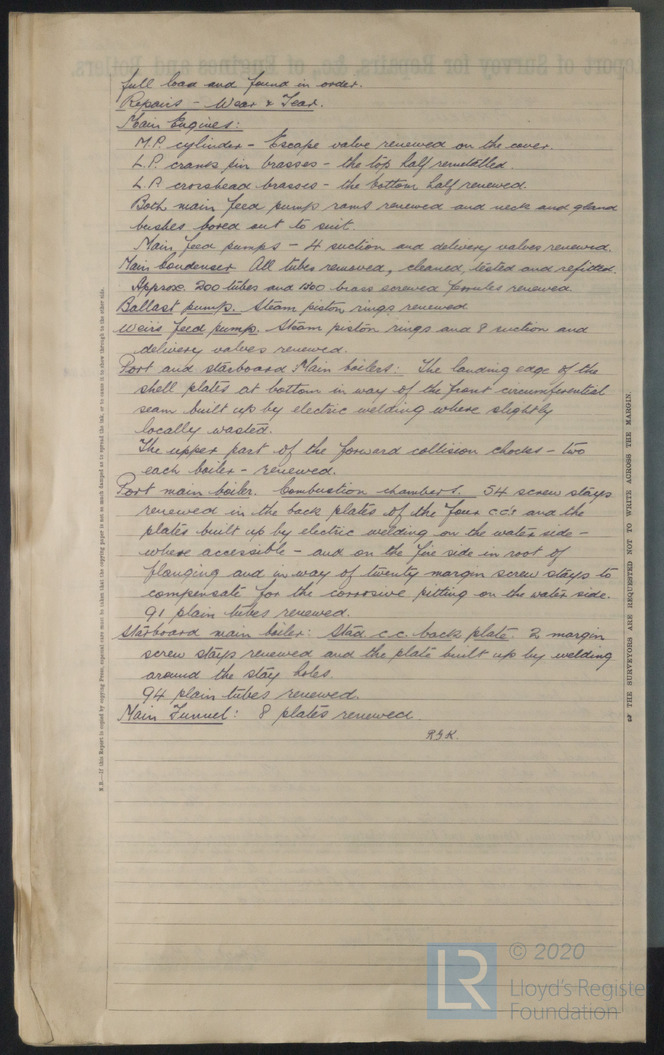 full load and found in order.
Repairs - Wear & Tear.
Main Engines:
M.P. cylinder - Escape valve renewed on the cover.
L.P. crank pin brasses - the top half remetalled.
L.P. crosshead brasses - the bottom half renewed.
Both main feed pump rams renewed and neck and gland
bushes bored out to suit.
Main feed pumps - 4 suction and delivery valves renewed.
Main Condenser All tubes removed, cleaned, tested and refitted.
Approx. 200 tubes and 1300 brass screwed ferrules renewed
Ballast pump. Steam piston rings renewed
Weirs feed pump. Steam piston rings and 8 suction and
delivery valves renewed.
Port and starboard Main boilers: The landing edge of the
shell plates at bottom in way of the front circumferential
seam built up by electric welding where slightly
locally wasted.
The upper part of the forward collision chocks - two
each boiler - renewed.
Port main boiler. Combustion chambers. 54 screw stays
renewed in the back plates of the four c.c's and the
plates built up by electric welding on the water side -
where accessible - and on the fire side in root of
flanging and in way of twenty margin screw stays to
compensate for the corrosive pitting on the water side.
91 plain tubes renewed.
Starboard main boiler: Stbd c.c. back plate. 2 margin
screw stays renewed and the plate built up by welding
around the stay holes.
94 plain tubes renewed.
Main Funnel: 8 plates renewed.
THE SURVEYORS ARE REQUESTED NOT TO WRITE ACROSS THE MARGIN.
© 2020
LR
Lloyd's Registe
Foundation